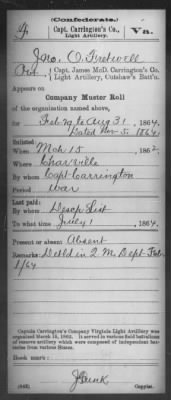 (Confederate.)
Capt. Carrington's Co., Va.
Light Artillery.
Jno. O. Fretwell
Pvt, Capt. James McD. Carrington's Co.
Light Artillery, Cutshaw's Batt'n.
Appears on
Company Muster Roll
of the organization named above,
for Feb 29 to Aug 31, 1864.
Dated Nov. 5, 1864
Enlisted:
When Mch 15, 1862
Where Charville
By whom Capt Carrington
Period War
Last paid:
By whom Desop List
To what time July 1, 1864.
Present or absent Absent
Remarks: Detld in 2 M. Dept Feb
1/64
Captain Carrington's Company Virginia Light Artillery was
organized March 15, 1862. It served in various field battalions
of reserve artillery which were composed of independent bat-
teries from various States.
Book mark:
(642)
Copyist.